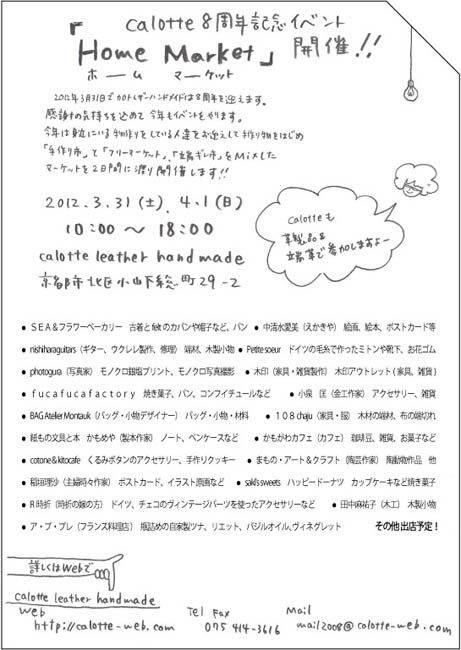 calotte 8周年記念イベント
「Home Market」開催!!
ホーム マーケット
2012年3月31日でカロトレザーハンドメイドは8周年を迎えます。
感謝の気持ちを込めて今年もイベントをやります。
今年は身近にいる物作りをしている人達をお迎えして手作り物をはじめ
「手作り市」と「フリーマーケット」、「端ギレ市」をMixした
マーケットを2日間に渡り開催します!!
2012.3.31(土).4.1(日)
10:00〜18:00
calotte leather hand made
京都市北区小山下総町29-2
calotteも
革製品&
端革で参加しますよー
● SEA&フラワーベーカリー 古着と felt のカバンや帽子など、パン ● 中清水愛美(えかきや) 絵画、絵本、ポストカード等
● nishiharaguitars(ギター、ウクレレ製作、修理) 端材、木製小物 ● Petite soeur ドイツの毛糸で作ったミトンや靴下、お花ゴム
● photogura(写真家) モノクロ銀塩プリント、モノクロ写真撮影 ● 木印(家具・雑貨製作) 木印アウトレット(家具、雑貨)
● fucafucafactory 焼き菓子、パン、コンフィチュールなど ● 小泉 匡(金工作家) アクセサリー、雑貨
● BAG Atelier Montauk(バッグ・小物デザイナー) バッグ・小物・材料 ● 108 chaju(家具・服) 木材の端材、布の端切れ
● 紙もの文具と本 かもめや(製本作家) ノート、ペンケースなど ● かもがわカフェ(カフェ) 珈琲豆、雑貨、お菓子など
● cotone & kitocafe くるみボタンのアクセサリー、手作りクッキー ● まもの・アート&クラフト(陶芸作家) 陶動物作品 他
● 稲垣理沙(主婦時々作家) ポストカード、イラスト原画など ● saki's sweets ハッピードーナツ カップケーキなど焼き菓子
● R時折(時折の嫁の方) ドイツ、チェコのヴィンテージパーツを使ったアクセサリーなど ● 田中麻祐子(木工) 木製小物
● ア・プ・プレ(フランス料理店) 瓶詰めの自家製ツナ、リエット、バジルオイル、ヴィネグレット その他出店予定!
詳しくはWebで
calotte leather handmade
web
http://calotte-web.com
Tel Fax
075 414-3616
Mail
mail2008@calotte-web.com